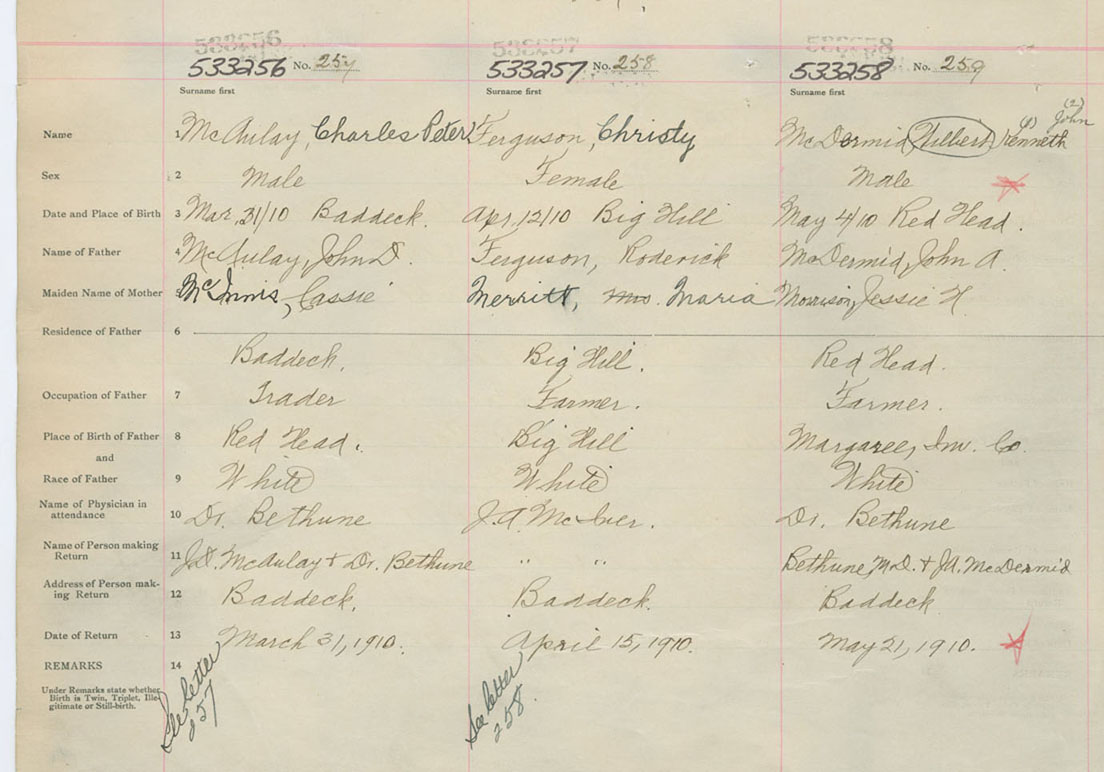 533256 533257 533258
533256 No. 257 533257 No. 258 533258 No. 259
Surname first Surname first Surname first
(2)
(1) John
Name 1 McAulay, Charles Peter Ferguson, Christy McDermid, Wilbert Kenneth
Sex 2 Male Female Male
Date and Place of Birth 3 Mar. 31/10 Baddeck. Apr. 12/10 Big Hill May 4/10 Red Head.
Name of Father 4 McAulay, John D. Ferguson, Roderick McDermid, John A.
Maiden Name of Mother McInnis, Cassie Merritt, Mrs. Maria Morrison, Jessie H
Residence of Father 6
Baddeck. Big Hill. Red Head.
Occupation of Father 7 Trader Farmer. Farmer.
Place of Birth of Father 8 Red Head. Big Hill Margaree, Inv. Co.
and
Race of Father 9 White White White
Name of Physician in
attendance 10 Dr. Bethune J.A. McIver. Dr. Bethune
Name of Person making
Return 11 J.D. McAulay + Dr. Bethune " " Bethune M.D. + J.A. McDermid
Address of Person mak-
ing Return 12 Baddeck. Baddeck. Baddeck
Date of Return 13 March 31, 1910. April 15, 1910. May 21, 1910.
REMARKS 14
Under Remarks state whether
Birth is Twin, Triplet, Ille-
gitimate or Still-birth.
See letter
257
See letter
258